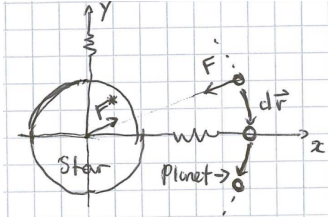 Y
F
F*
dr⃗
x
Star
Planet→